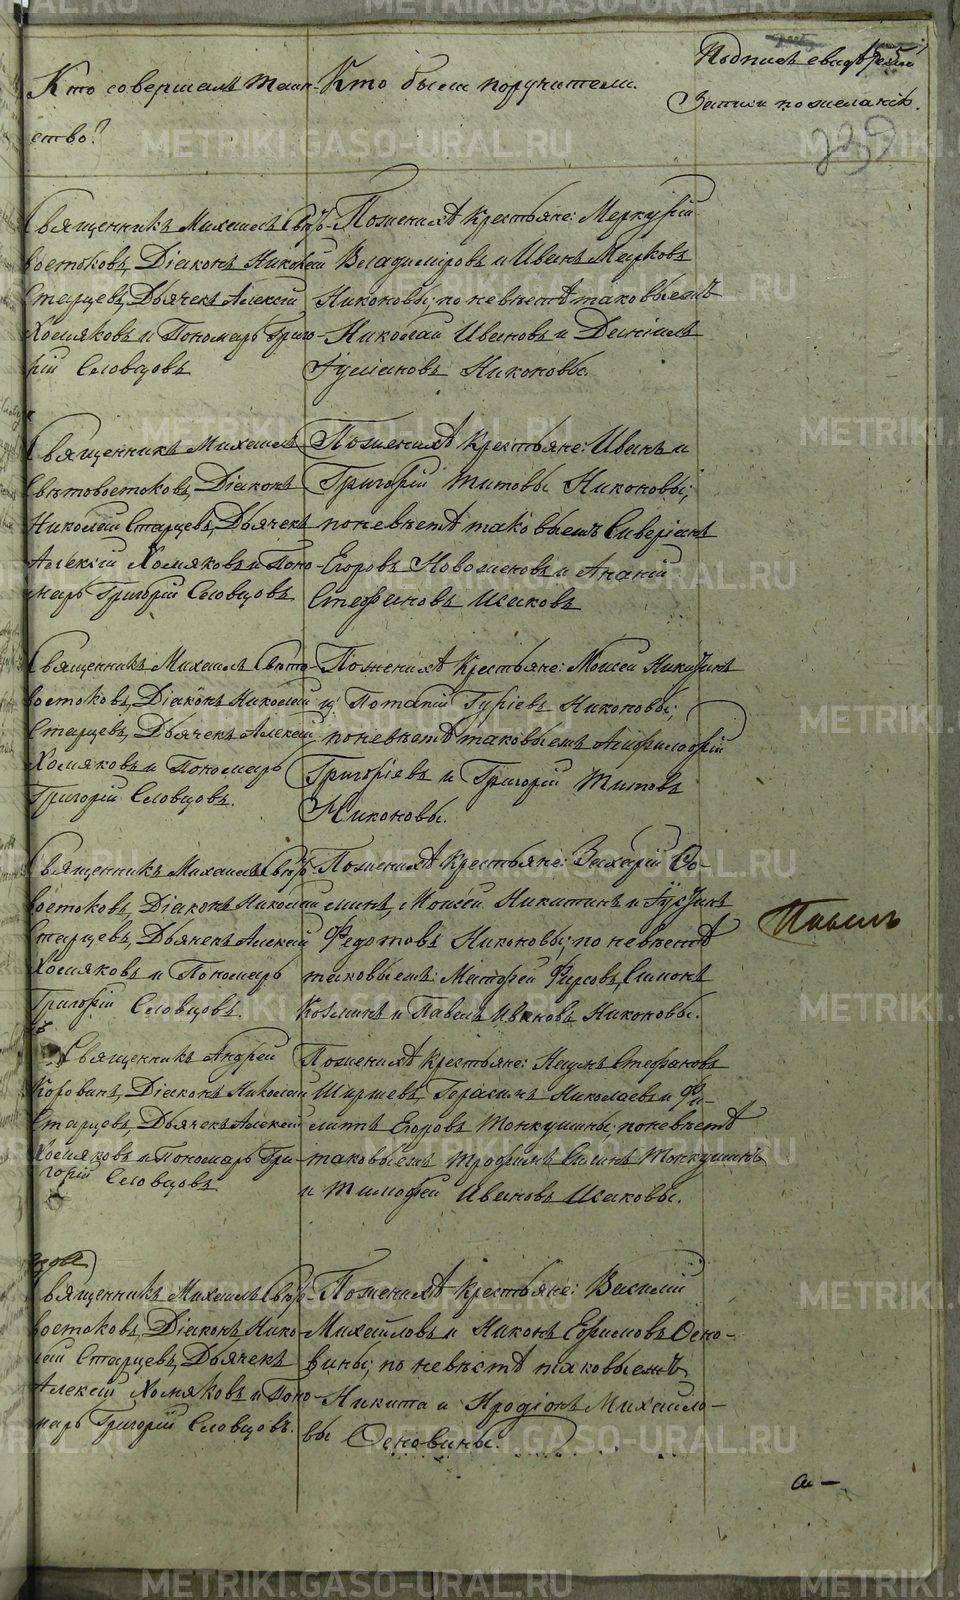 Кто совершалъ таин-
ство?
Кто были поручители.
Подпись свидѣтелей
Записи по желанію.
239
Священникъ Михаилъ Свѣто-
востоковъ, Діаконъ Николай
Старцевъ, Дьячекъ Алексій
Хомяковъ и Пономарь Григо-
рій Словцовъ
По женихѣ крестьяне: Меркурій
Владиміровъ и Иванъ Марковъ
Никоновы; по невѣстѣ таковыежъ
Николай Ивановъ и Даніилъ
Іуліановъ Никоновы.
Священникъ Михаилъ
Свѣтовостоковъ, Діаконъ
Николай Старцевъ, Дьячекъ
Алексій Хомяковъ и Поно-
марь Григорій Словцовъ
По женихѣ крестьяне: Иванъ и
Григорій Титовы Никоновы;
по невѣстѣ таковыежъ Сиверіанъ
Егоровъ Новоженовъ и Ананій
Стефановъ Исаковъ
Священникъ Михаилъ Свѣто-
востоковъ, Діаконъ Николай
Старцевъ, Дьячекъ Алексій
Хомяковъ и Пономарь
Григорій Словцовъ.
По женихѣ крестьяне: Моисей Никитинъ
и Потапій Гуріевъ Никоновы;
по невѣстѣ таковыежъ Агафилофій
Григоріевъ и Григорій Титовъ
Никоновы.
Священникъ Михаилъ Свѣто-
востоковъ, Діаконъ Николай
Старцевъ, Дьячекъ Алексій
Хомяковъ и Пономарь
Григорій Словцовъ.
По женихѣ крестьяне: Захарій Ѳо-
минъ, Моисей Никитинъ и Іустинъ
Федотовъ Никоновы; по невѣстѣ
таковыежъ: Матфей Фирсовъ, Симонъ
Козминъ и Павелъ Ивановъ Никоновы.
Павелъ
Священникъ Андрей
Коровинъ, Діаконъ Николай
Старцевъ, Дьячекъ Алексій
Хомяковъ и Пономарь Гри-
горій Словцовъ
По женихѣ крестьяне: Наумъ Стефановъ
Ширшевъ, Герасимъ Николаевъ и Фи-
липъ Егоровъ Тонкушины; по невѣстѣ
таковыежъ Трофимъ Силинъ Тонкушинъ
и Тимофей Ивановъ Исаковы.
Священникъ Михаилъ Свѣто-
востоковъ, Діаконъ Нико-
лай Старцевъ, Дьячекъ
Алексій Хомяковъ и Поно-
марь Григорій Словцовъ.
По женихѣ крестьяне: Василій
Михайловъ и Никонъ Ефимовъ Осно-
вины; по невѣстѣ таковыежъ
Никита и Иродіонъ Михайло-
вы Основины.
METRIKI.GASO-URAL.RU